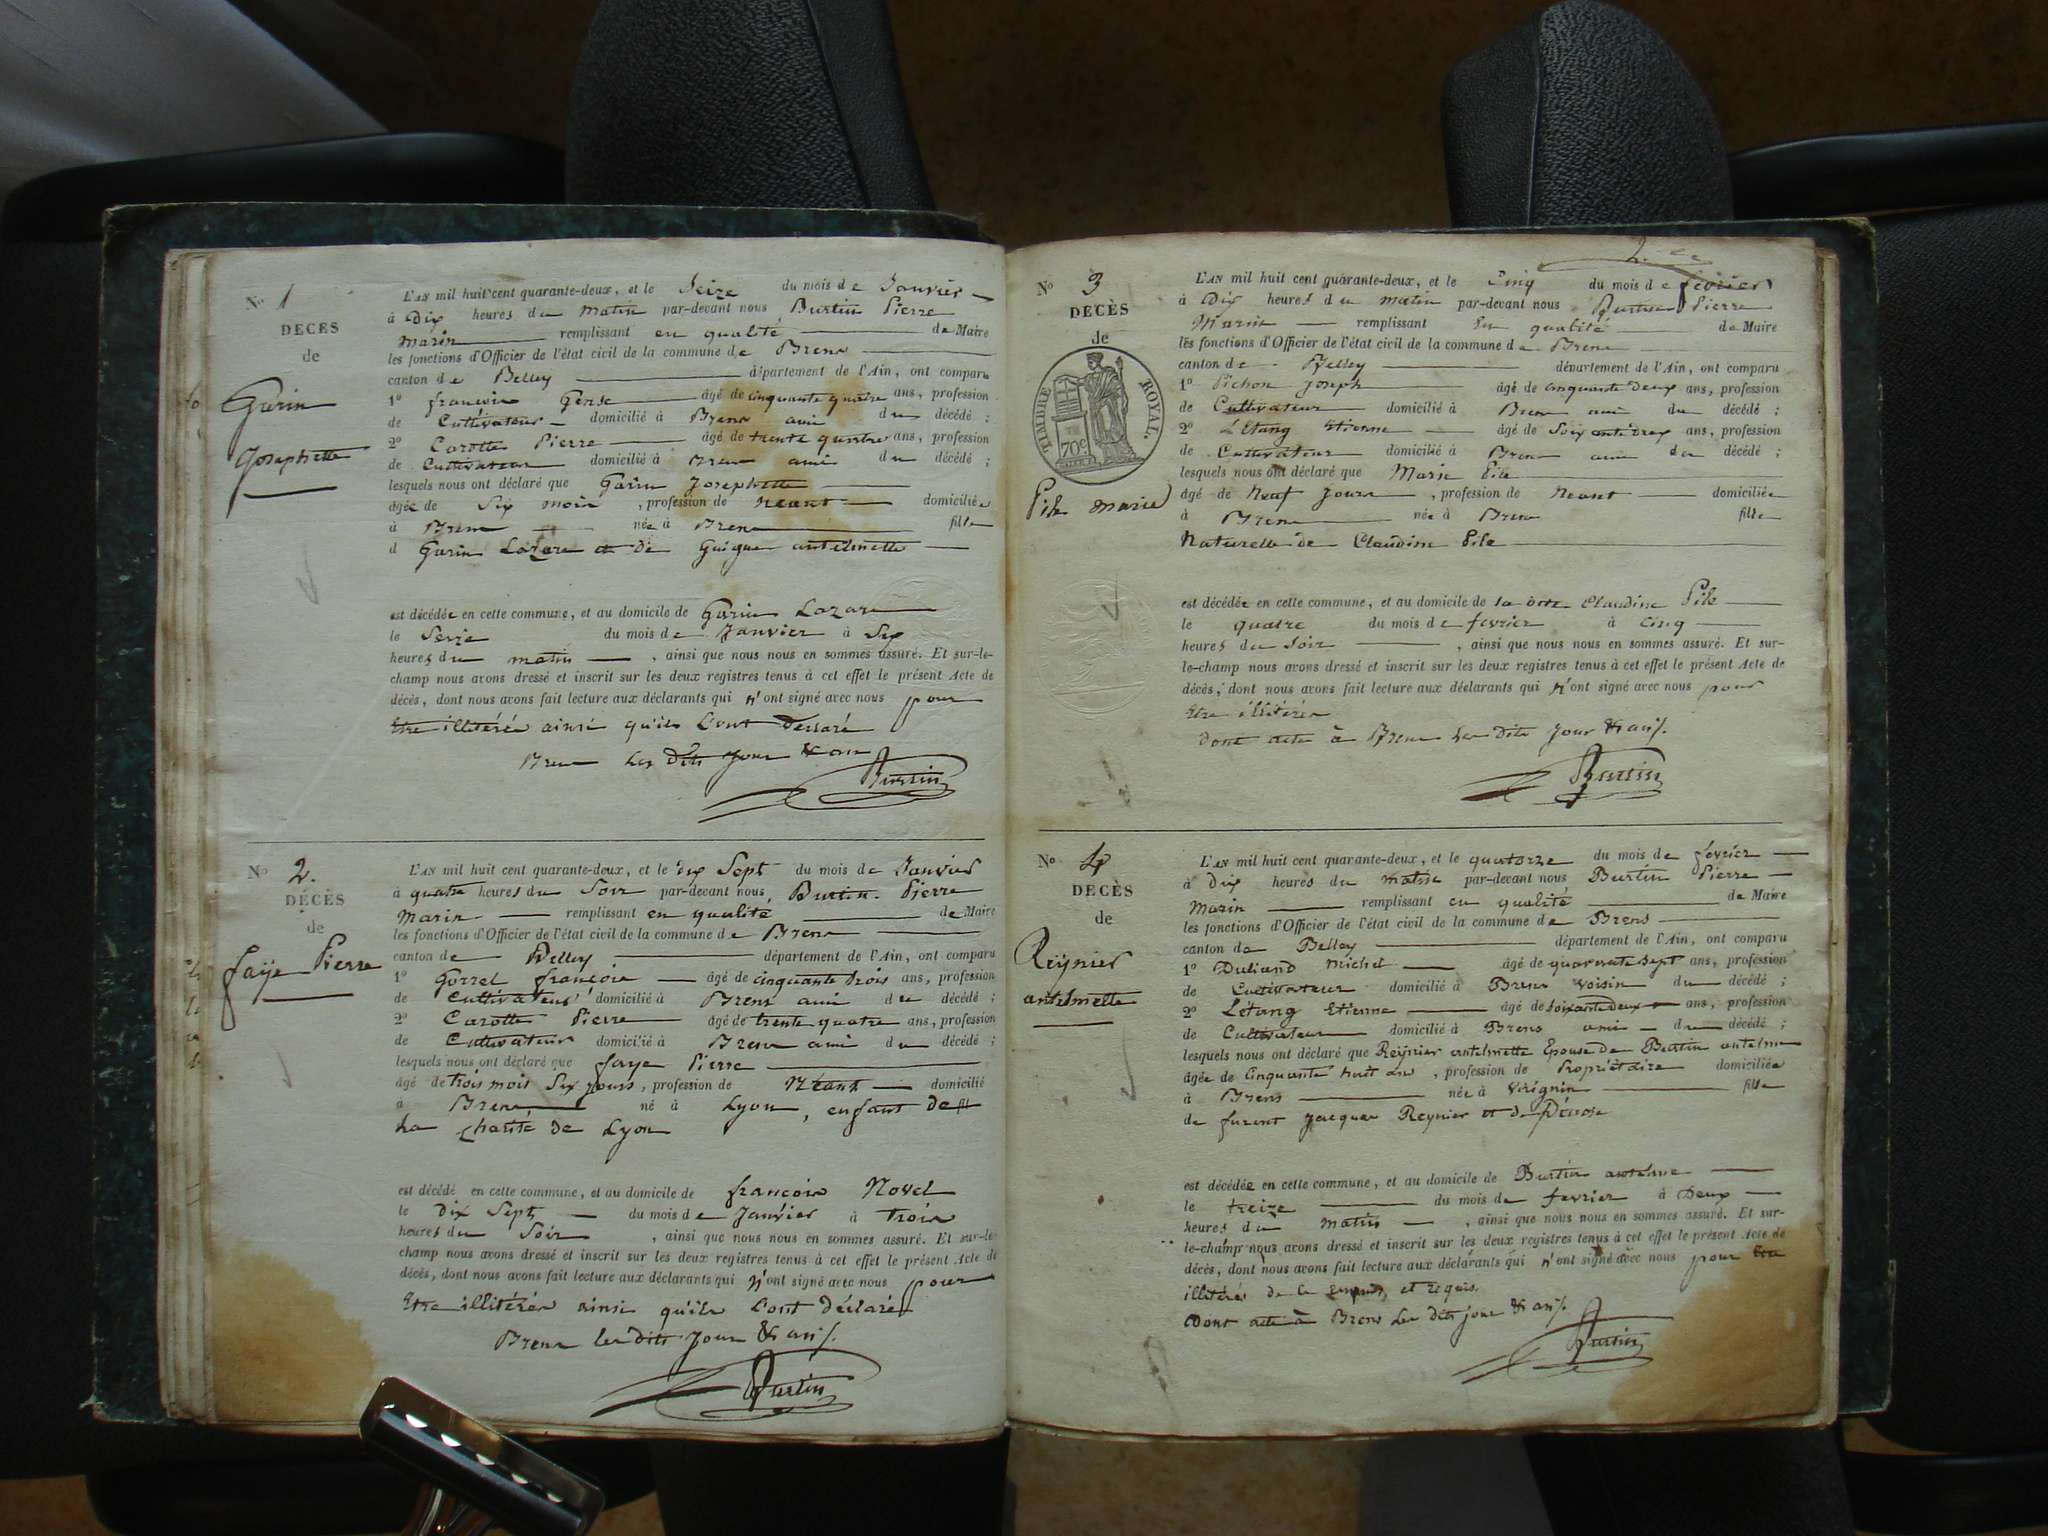 N° 1
DÉCÈS
de
Garin
Josephette
L'AN mil huit cent quarante-deux, et le Seize du mois de Janvier
à Dix heures du matin par-devant nous Burtin Pierre
Marin remplissant en qualité de Maire
les fonctions d'Officier de l'état civil de la commune de Brens
canton de Belley département de l'Ain, ont comparu
1° françois âgé de cinquante quatre ans, profession
de Cultivateur domicilié à Brens ami du décédé ;
2° Carotte Pierre âgé de trente quatre ans, profession
de Cultivateur domicilié à Brens ami du décédé ;
lesquels nous ont déclaré que Garin Josephette
âgée de Six mois, profession de Neant domiciliée
à Brens née à Brens fille
d Garin Lazare et de Guigue antelmette
est décédée en cette commune, et au domicile de Garin Lazare
le Seize du mois de Janvier à Six
heures du matin, ainsi que nous nous en sommes assuré. Et sur-le-
champ nous avons dressé et inscrit sur les deux registres tenus à cet effet le présent Acte de
décès, dont nous avons fait lecture aux déclarants qui n'ont signé avec nous pour
Etre illitérés ainsi qu'ils l'ont
Brens les dits jour & an
Burtin
N° 2.
DÉCÈS
de
faye Pierre
L'AN mil huit cent quarante-deux, et le dix Sept du mois de Janvier
à quatre heures du Soir par-devant nous Burtin Pierre
Marin remplissant en qualité de Maire
les fonctions d'Officier de l'état civil de la commune de Brens
canton de Belley département de l'Ain, ont comparu
1° Gorrel françois âgé de cinquante trois ans, profession
de Cultivateur domicilié à Brens ami du décédé ;
2° Carotte Pierre âgé de trente quatre ans, profession
de Cultivateur domicilié à Brens ami du décédé ;
lesquels nous ont déclaré que faye Pierre
âgé de trois mois Six jours, profession de Néant domicilié
à Brens né à Lyon, enfant de
La charité de Lyon
est décédé en cette commune, et au domicile de françois Novel
le Dix Sept du mois de Janvier à trois
heures du Soir, ainsi que nous nous en sommes assuré. Et sur-le-
champ nous avons dressé et inscrit sur les deux registres tenus à cet effet le présent Acte de
décès, dont nous avons fait lecture aux déclarants qui n'ont signé avec nous pour
Etre illitérés ainsi qu'ils l'ont déclaré
Brens les dits jour & an
Burtin
N° 3
DÉCÈS
de
TIMBRE ROYAL.
70c
Pile marie
L'AN mil huit cent quarante-deux, et le Cinq du mois de février
à Dix heures du matin par-devant nous Burtin Pierre
Marin remplissant en qualité de Maire
les fonctions d'Officier de l'état civil de la commune de Brens
canton de Belley département de l'Ain, ont comparu
1° Pichon Joseph âgé de cinquante deux ans, profession
de Cultivateur domicilié à Brens ami du décédé ;
2° Létang Etienne âgé de Soixante deux ans, profession
de Cultivateur domicilié à Brens ami du décédé ;
lesquels nous ont déclaré que Marie Pile
âgé de Neuf Jours, profession de Neant domiciliée
à Brens née à Brens fille
Naturelle de Claudine Pile
est décédée en cette commune, et au domicile de Claudine Pile
le quatre du mois de fevrier à cinq
heures du Soir, ainsi que nous nous en sommes assuré. Et sur-
le-champ nous avons dressé et inscrit sur les deux registres tenus à cet effet le présent Acte de
décès, dont nous avons fait lecture aux déclarants qui n'ont signé avec nous pour
Etre illitérés
Dont acte à Brens les dits jour & an
Burtin
N° 4
DÉCÈS
de
Reÿnier
antelmette
L'AN mil huit cent quarante-deux, et le quatorze du mois de fevrier
à Dix heures du matin par-devant nous Burtin Pierre
Marin remplissant en qualité de Maire
les fonctions d'Officier de l'état civil de la commune de Brens
canton de Belley département de l'Ain, ont comparu
1° Duliand Michel âgé de quarante sept ans, profession
de Cultivateur domicilié à Brens voisin du décédé ;
2° Létang Etienne âgé de soixante deux ans, profession
de Cultivateur domicilié à Brens ami du décédé ;
lesquels nous ont déclaré que Reÿnier antelmette Epouse de Burtin antelme
âgée de Cinquante huit ans, profession de Propriétaire domiciliée
à Brens née à Virignin fille
de furent Jacques Reynier et de
est décédée en cette commune, et au domicile de Burtin antelme
le treize du mois de fevrier à Deux
heures du matin, ainsi que nous nous en sommes assuré. Et sur-
le-champ nous avons dressé et inscrit sur les deux registres tenus à cet effet le présent Acte de
décès, dont nous avons fait lecture aux déclarants qui n'ont signé avec nous pour
illitérés de ce et requis.
Dont acte à Brens les dits jour & an
Burtin